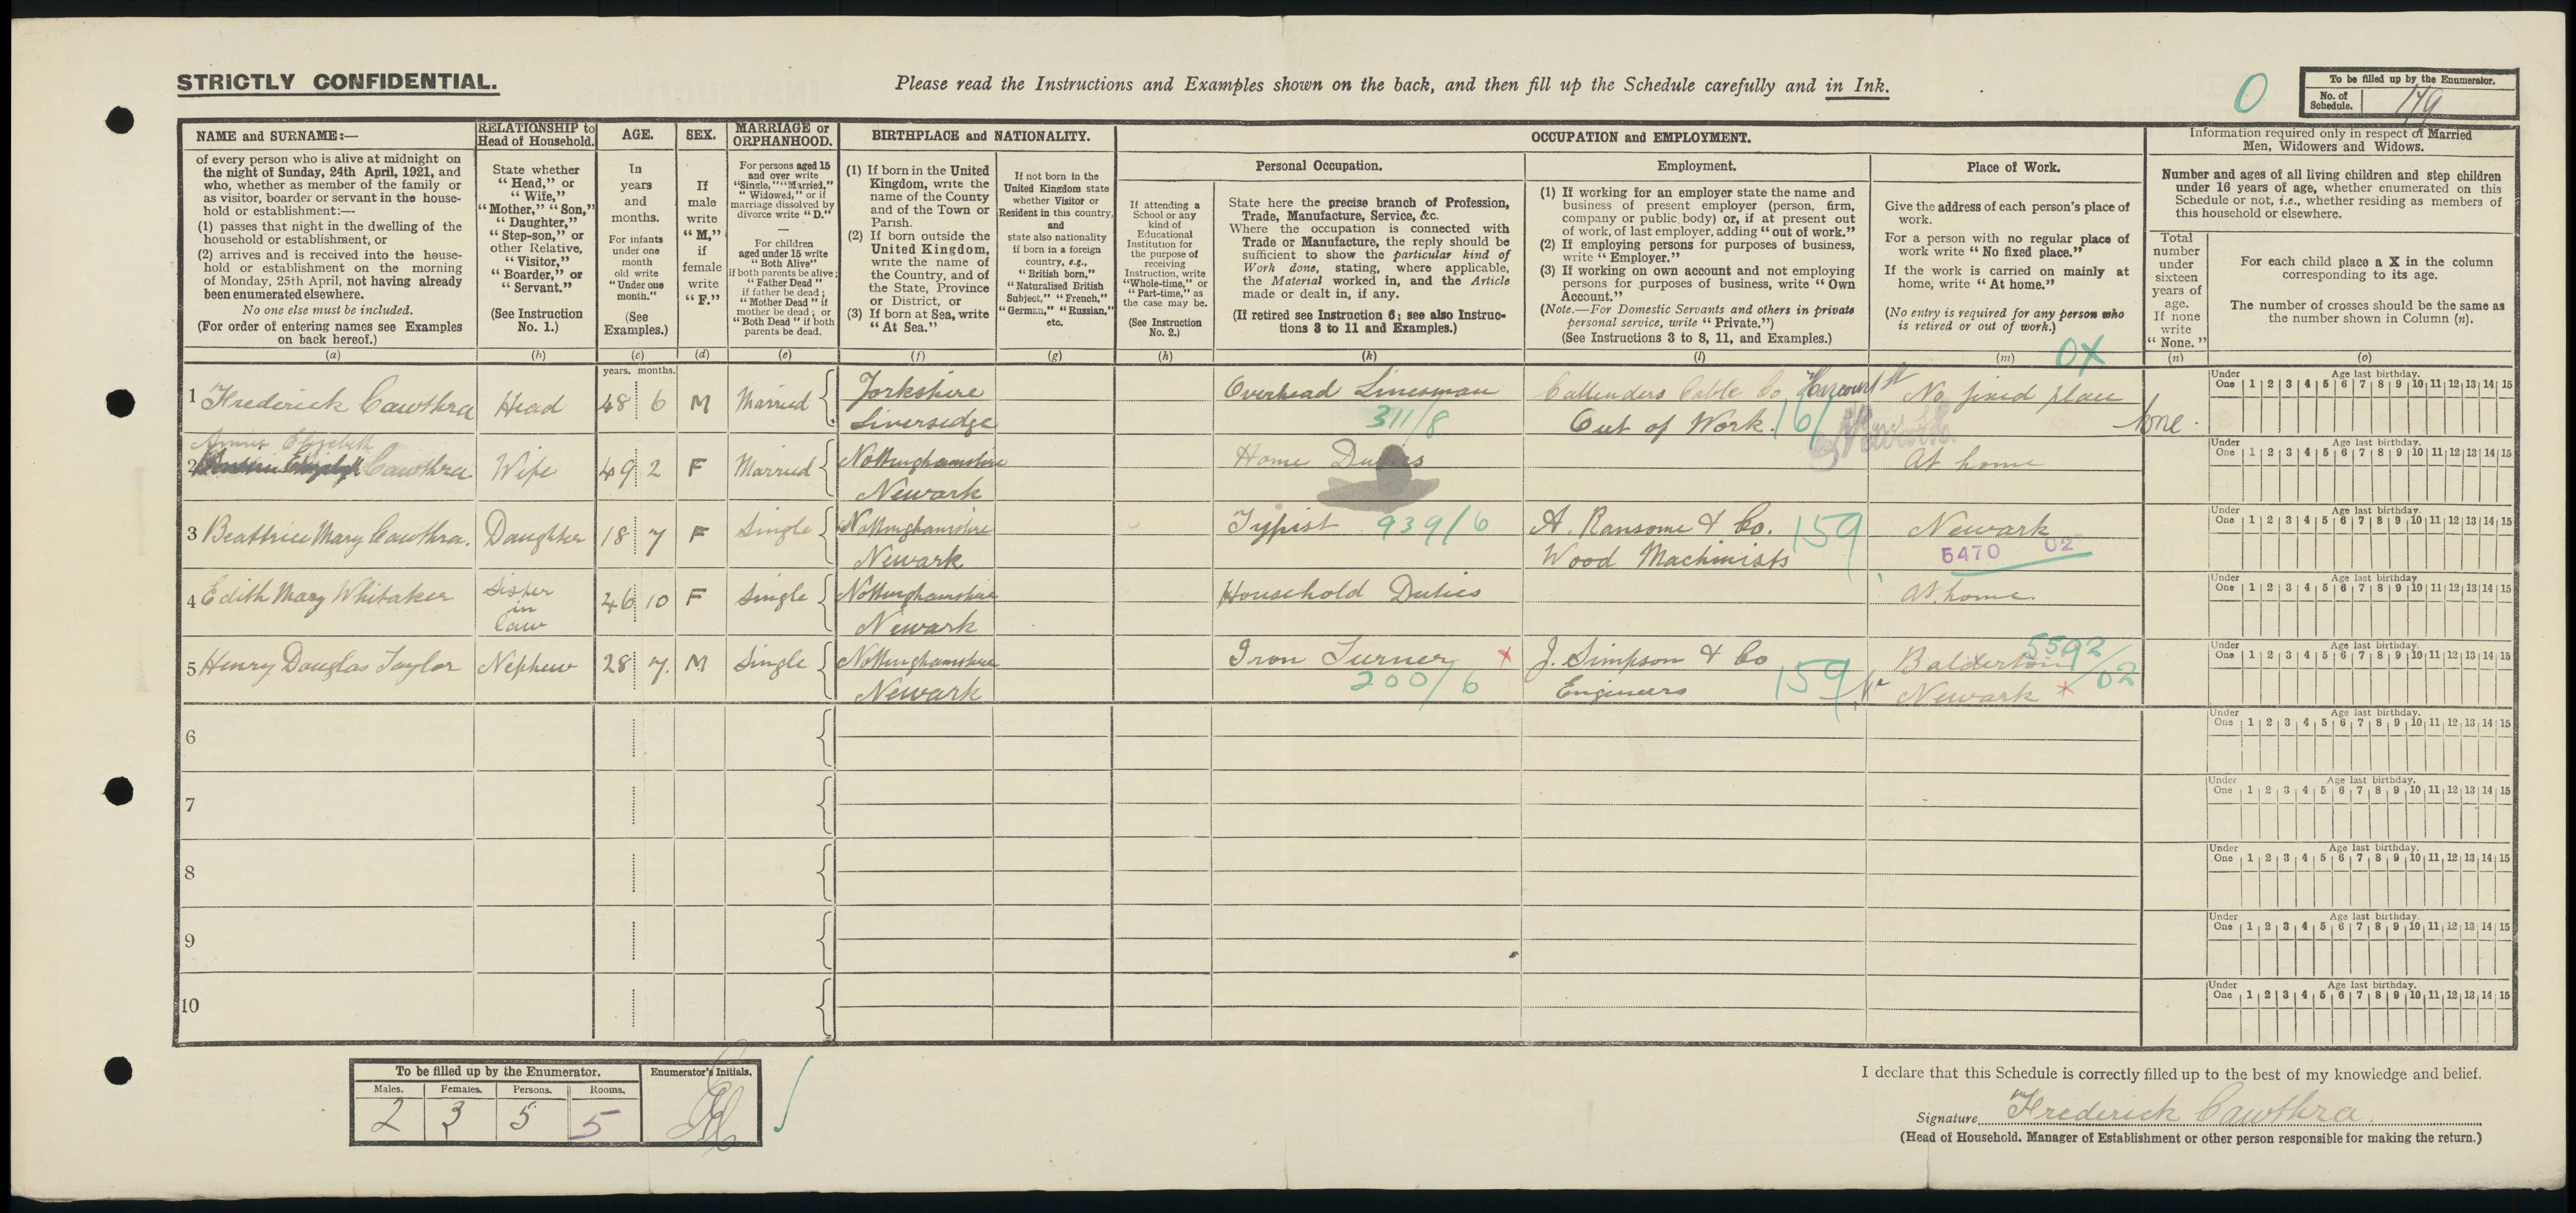 STRICTLY CONFIDENTIAL.
Please read the Instructions and Examples shown on the back, and then fill up the Schedule carefully and in Ink.
0
To be filled up by the Enumerator.
No. of Schedule. 179
NAME and SURNAME:—
of every person who is alive at midnight on
the night of Sunday, 24th April, 1921, and
who, whether as member of the family or
as visitor, boarder or servant in the house-
hold or establishment:—
(1) passes that night in the dwelling of the
household or establishment, or
(2) arrives and is received into the house-
hold or establishment on the morning
of Monday, 25th April, not having already
been enumerated elsewhere.
No one else must be included.
(For order of entering names see Examples
on back hereof.)
(a)
RELATIONSHIP to
Head of Household.
State whether
"Head," or
"Wife,"
"Mother," "Son,"
"Daughter,"
"Step-son," or
other Relative,
"Visitor,"
"Boarder," or
"Servant."
(See Instruction
No. 1.)
(b)
AGE.
In
years
and
months.
For infants
under one
month
old write
"Under one
month."
(See
Examples.)
(c)
SEX.
If
male
write
"M,"
if
female
write
"F."
(d)
MARRIAGE or
ORPHANHOOD.
For persons aged 15
and over write
"Single," "Married,"
"Widowed," or if
marriage dissolved by
divorce write "D."
—
For children
aged under 15 write
"Both Alive"
if both parents be alive;
"Father Dead"
if father be dead;
"Mother Dead" if
mother be dead; or
"Both Dead" if both
parents be dead.
(e)
BIRTHPLACE and NATIONALITY.
(1) If born in the United
Kingdom, write the
name of the County
and of the Town or
Parish.
(2) If born outside the
United Kingdom,
write the name of
the Country, and of
the State, Province
or District, or
(3) If born at Sea, write
"At Sea."
(f)
If not born in the
United Kingdom state
whether Visitor or
Resident in this country,
and
state also nationality
if born in a foreign
country, e.g.,
"British born,"
"Naturalised British
Subject," "French,"
"German," "Russian,"
etc.
(g)
OCCUPATION and EMPLOYMENT.
If attending a
School or any
kind of
Educational
Institution for
the purpose of
receiving
Instruction, write
"Whole-time," or
"Part-time," as
the case may be.
(See Instruction
No. 2.)
(h)
Personal Occupation.
State here the precise branch of Profession,
Trade, Manufacture, Service, &c.
Where the occupation is connected with
Trade or Manufacture, the reply should be
sufficient to show the particular kind of
Work done, stating, where applicable,
the Material worked in, and the Article
made or dealt in, if any.
(If retired see Instruction 6; see also Instruc-
tions 3 to 11 and Examples.)
(k)
Employment.
(1) If working for an employer state the name and
business of present employer (person, firm,
company or public body) or, if at present out
of work, of last employer, adding "out of work."
(2) If employing persons for purposes of business,
write "Employer."
(3) If working on own account and not employing
persons for purposes of business, write "Own
Account."
(Note.—For Domestic Servants and others in private
personal service, write "Private.")
(See Instructions 3 to 8, 11, and Examples.)
(l)
Place of Work.
Give the address of each person's place of
work.
For a person with no regular place of
work write "No fixed place."
If the work is carried on mainly at
home, write "At home."
(No entry is required for any person who
is retired or out of work.)
(m)
OX
Information required only in respect of Married
Men, Widowers and Widows.
Number and ages of all living children and step children
under 16 years of age, whether enumerated on this
Schedule or not, i.e., whether residing as members of
this household or elsewhere.
Total
number
under
sixteen
years of
age.
If none
write
"None."
(n)
For each child place a X in the column
corresponding to its age.
The number of crosses should be the same as
the number shown in Column (n).
(o)
years. months.
1 Frederick Cawthra Head 48 6 M Married Yorkshire Overhead Linesman Callenders Cable Co No fixed place
Liversedge 311/8 Out of Work. 161 None.
Under One 1 2 3 4 5 6 7 8 9 10 11 12 13 14 15 Age last birthday.
Annie Elizabeth
2 Cawthra Wife 49 2 F Married Nottinghamshire Home Duties At home
Newark
Under One 1 2 3 4 5 6 7 8 9 10 11 12 13 14 15 Age last birthday.
3 Beattrice Mary Cawthra. Daughter 18 7 F Single Nottinghamshire Typist 939/6 A. Ransome & Co. 159 Newark
Newark Wood Machinists 5470 02
Under One 1 2 3 4 5 6 7 8 9 10 11 12 13 14 15 Age last birthday.
4 Edith Mary Whitaker Sister in law 46 10 F Single Nottinghamshire Household Duties At home
Newark
Under One 1 2 3 4 5 6 7 8 9 10 11 12 13 14 15 Age last birthday.
5 Henry Douglas Taylor Nephew 28 7. M Single Nottinghamshire Iron Turner x J. Simpson & Co Balderton 5592/02
Newark 200/6 Engineers 159 Nr Newark x
Under One 1 2 3 4 5 6 7 8 9 10 11 12 13 14 15 Age last birthday.
6
Under One 1 2 3 4 5 6 7 8 9 10 11 12 13 14 15 Age last birthday.
7
Under One 1 2 3 4 5 6 7 8 9 10 11 12 13 14 15 Age last birthday.
8
Under One 1 2 3 4 5 6 7 8 9 10 11 12 13 14 15 Age last birthday.
9
Under One 1 2 3 4 5 6 7 8 9 10 11 12 13 14 15 Age last birthday.
10
Under One 1 2 3 4 5 6 7 8 9 10 11 12 13 14 15 Age last birthday.
To be filled up by the Enumerator.
Males. Females. Persons. Rooms.
2 3 5 5
Enumerator's Initials.
I declare that this Schedule is correctly filled up to the best of my knowledge and belief.
Signature Frederick Cawthra.
(Head of Household. Manager of Establishment or other person responsible for making the return.)